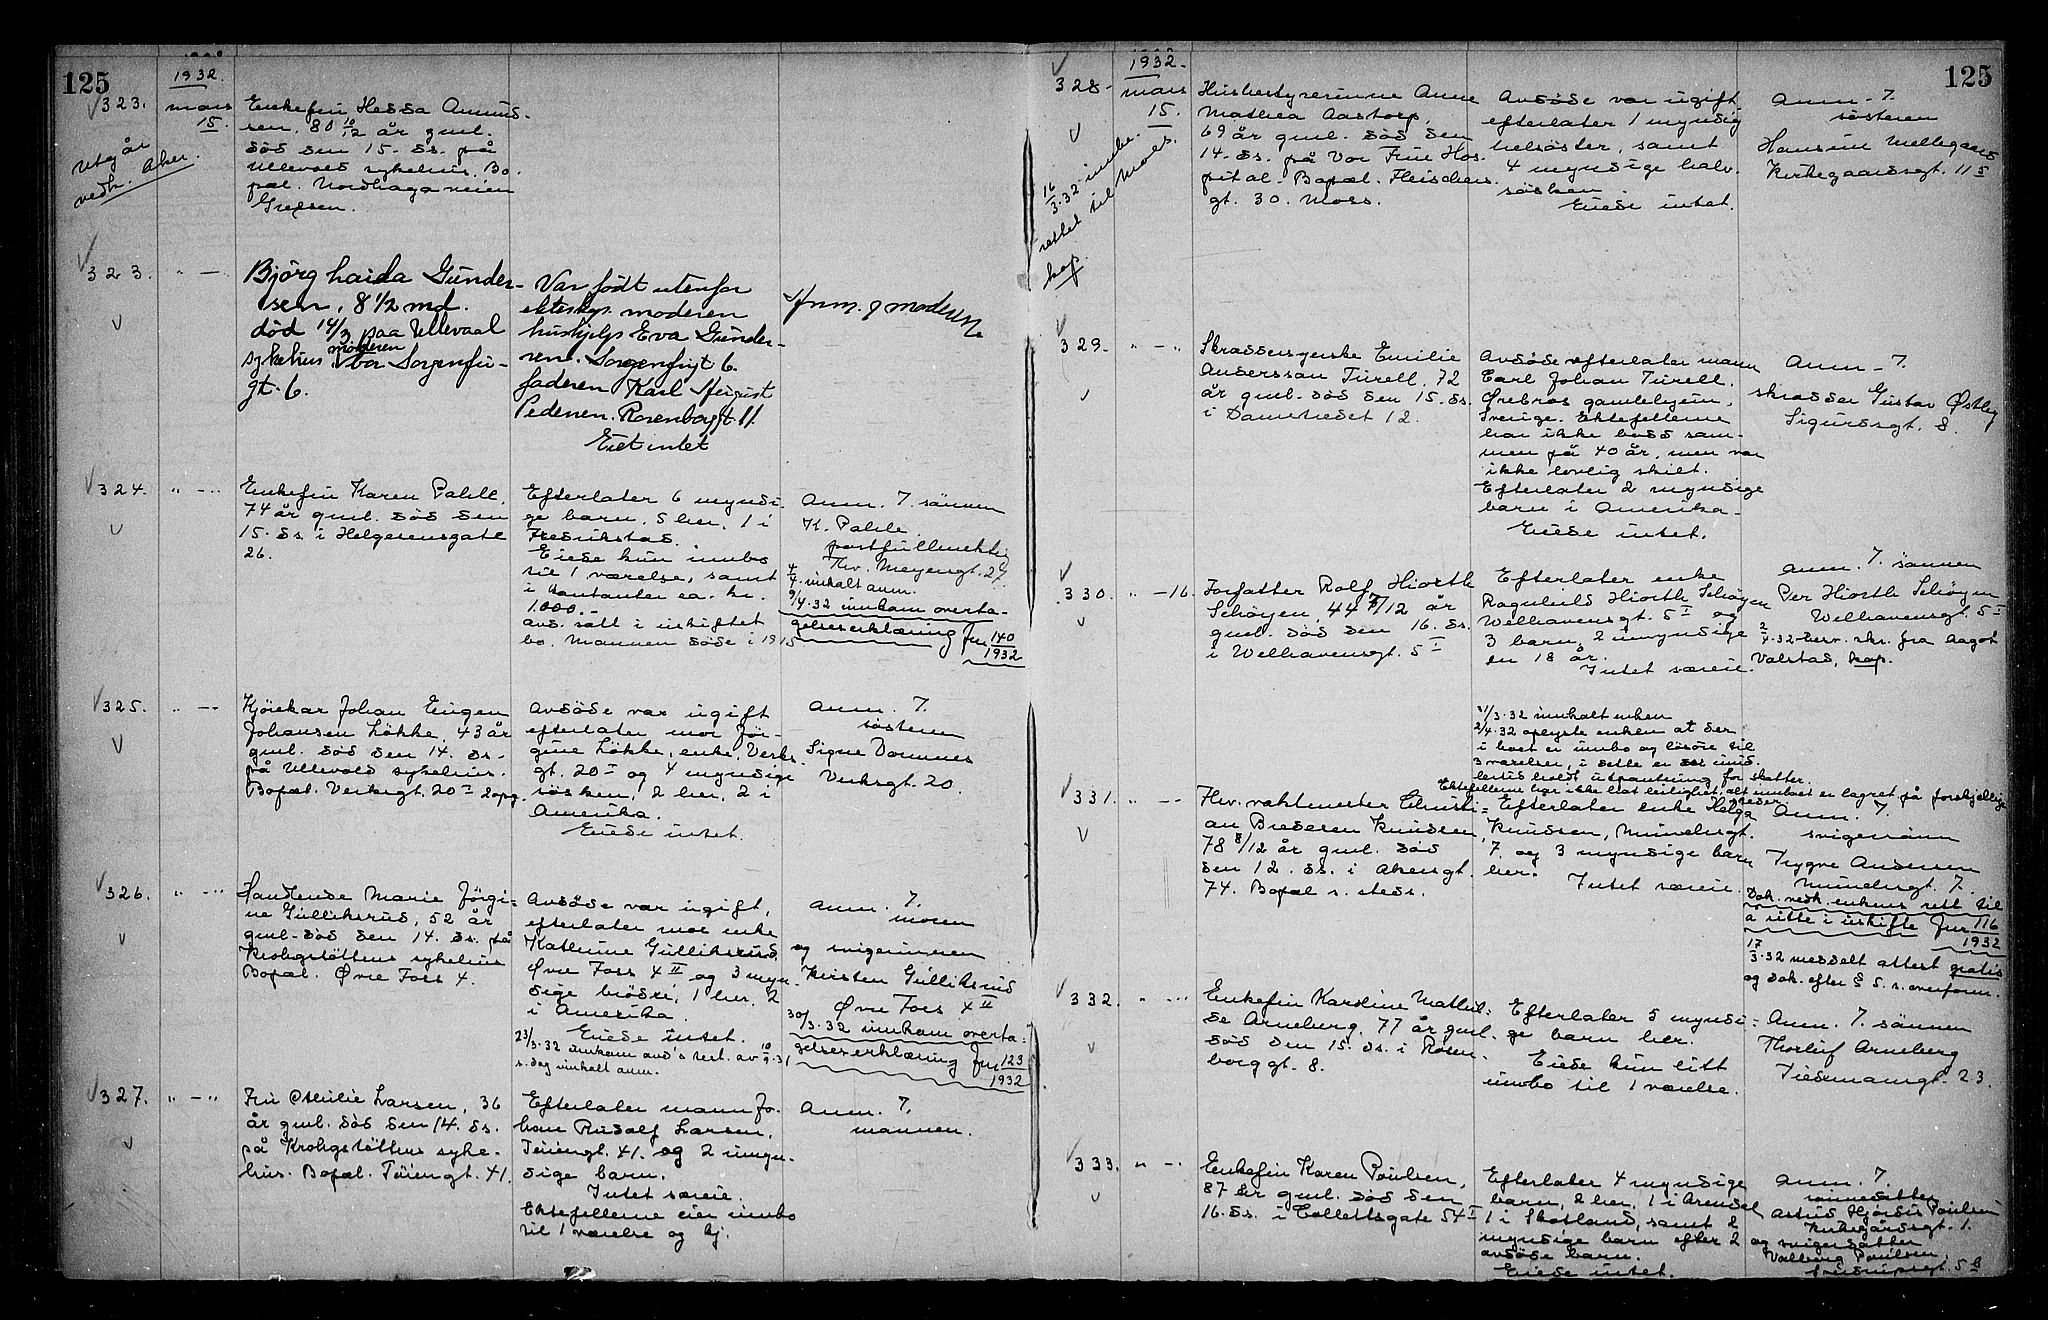 125
1932.
323. mars 15.
Utgår vedk. Aker.
Enkefru Hedda Amund-
sen, 80 10/12 år gml.
død den 15. ds. på
Ullevold sykehus. Bo-
pæl. Nordhagaveien
Grefsen.
323. " —
Bjørg Laida Gunder-
sen, 8 1/2 md.
død 14/3 paa Ullevaal
sykehus moderen bor Sorgenfri-
gt. 6.
Var født utenfor
ekteskap. moderen
hushjelp Eva Gunder-
sen. Sorgenfrigt 6.
faderen Karl August
Pedersen. Rosenborggt 11.
Eiet intet
Anm. af moderen
324. " - "
Enkefru Karen Pahle,
74 år gml. død den
15. ds. i Helgesensgate
26.
Efterlater 6 myndi-
ge barn, 5 her, 1 i
Fredrikstad.
Eiede kun innbo
til 1 værelse, samt
i kontanter ca. kr.
1.000.-
avd. satt i uskiftet
bo. Mannen døde i 1915
Anm. 7. sønnen
K. Pahle
postfullmektig
Thv. Meyersgt. 27.
4/4. innkalt anm.
9/4.32 innkom overta-
gelseserklæring Jnr 140
1932
325. " - "
Kjørekar Johan Eugen
Johansen Løkke, 43 år
gml. død den 14. ds.
på Ullevold sykehus.
Bopæl. Verksgt. 20 I 2 opg.
Avdøde var ugift
efterlater mor Jør-
gine Løkke, enke, Verks-
gt. 20 I og 4 myndige
søsken, 2 her, 2 i
Amerika.
Eiede intet.
Anm. 7.
søsteren
Signe Domnes
Verksgt. 20.
326. " - "
Handlende Marie Jørgi-
ne Gulliksrud, 52 år
gml. død den 14. ds. på
Krohgstøttens sykehus
Bopæl. Øvre Foss 4.
Avdøde var ugift,
efterlater mor enke
Kathrine Gulliksrud
Øvre Foss 4 II og 3 myn-
dige brødre, 1 her, 2
i Amerika.
Eiede intet.
23/3.32 innkom avd's test. av 10/9.31
s. dag innkalt anm.
Anm. 7.
moren
og svigerinnen
Kirsten Gulliksrud
Øvre Foss 4 II
30/3.32 innkom overta-
gelseserklæring Jnr 123
1932
327. " - "
Fru Otilie Larsen, 36
år gml. død den 14. ds.
på Krohgstøttens syke-
hus. Bopæl. Tøiengt. 41.
Efterlater mann Jo-
han Rudolf Larsen,
Tøiengt. 41. og 2 umyn-
dige barn.
Intet særeie.
Ektefellene eier innbo
til 1 værelse og kj.
Anm. 7.
mannen.
125
1932.
328. mars 15.
16/3.32 innbe-
rettet til Moss
kap.
Husbestyrerinne Anne
Mathea Aastorp,
69 år gml. død den
14. ds. på Vor Frue Hos-
pital. Bopæl. Fleischers-
gt. 30. Moss.
Avdøde var ugift
efterlater 1 myndig
helsøster, samt
4 myndige halv-
søsken.
Eiede intet.
Anm. 7.
søsteren
Hansine Mellegaard
Kirkegaardsgt. 11 5
329. " - "
Skreddersyerske Emilie
Anderssan Turell, 72
år gml. død den 15. ds.
i Damstredet 12.
Avdøde efterlater mann
Carl Johan Turell.
Ørebros gamlehjem,
Sverige. Ektefellene
har ikke bodd sam-
men på 40 år, men var
ikke lovlig skilt.
Efterlater 2 myndige
barn i Amerika.
Eiede intet.
Anm. 7.
skredder Gustav Østby
Sigurdsgt. 8.
330. " - 16.
Forfatter Rolf Hiorth
Schøyen, 44 7/12 år
gml. død den 16. ds.
i Welhavensgt. 5 I
Efterlater enke
Ragnhild Hiorth Schøyen
Welhavensgt. 5 I og
3 barn, 2 umyndige
en 18 år.
Intet særeie.
31/3.32 innkalt enken
2/4.32 oplyste enken at der
i boet er innbo og løsøre til
3 værelser, i dette er der imid-
lertid holdt utpantning for skatter.
Ektefellene har ikke hat leilighet, alt innboet er lagret på forskjellige steder
Anm. 7. sønnen
Per Hiorth Schøyen
Welhavensgt. 5 I
2/4.32 besv. skr. fra Aagot
Valstad, kop.
331. " - "
Fhv. vaktmester Christi-
an Brederen Knudsen,
78 8/12 år gml. død
den 12. ds. i Akersgt.
74. Bopæl s. steds.
Efterlater enke Helga
Knudsen, Munchsgt.
7. og 3 myndige barn
her.
Intet særeie.
Anm. 7.
svigersønn
Trygve Andersen
Munchsgt. 7.
Dok. vedk. enkens rett til
å sitte i uskifte Jnr 116
1932
17/3.32 meddelt attest gratis
og dok. efter § 5. s. overform.
332. " - "
Enkefru Karoline Mathil-
de Arneberg, 77 år gml.
død den 15. ds. i Rosen-
borggt. 8.
Efterlater 5 myndi-
ge barn her.
Eiede kun litt
innbo til 1 værelse.
Anm. 7. sønnen
Thorleif Arneberg
Tidemansgt. 23.
333. " - "
Enkefru Karen Poulsen,
87 år gml. død den
16. ds. i Collettsgate 54 I
Efterlater 4 myndige
barn, 2 her, 1 i Arendal
1 i Skotland, samt 2
myndige barn efter 2
avdøde barn.
Eiede intet.
Anm. 7.
sønnedatter
Astrid Hjørdis Poulsen
Kirkegårdsgt. 1.
og svigerdatter
Valborg Poulsen,
5 B